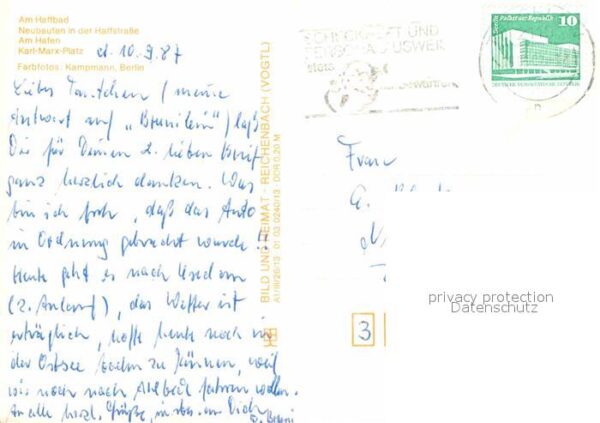 Am Haffbad
Neubauten in der Haffstraße
Am Hafen
Karl-Marx-Platz
Farbfotos: Kampmann, Berlin
d. 10.9.87
Liebes Tantchen (meine
Antwort auf „Brunilein“) laß
Dir für Deinen l. lieben Brief
ganz herzlich danken. Was
bin ich froh, daß das Auto
in Ordnung gebracht wurde!!
Heute geht es nach Usedom
(2. Anlauf), das Wetter ist
erträglich, hoffe heute noch in
der Ostsee baden zu können, weil
wir noch nach Ahlbeck fahren wollen.
An alle herzl. Grüße, in an Dich
BILD UND HEIMAT · REICHENBACH (VOGTL)
A1/III/26/13 01 03 0240/13 DDR 0,20 M
SCHECKHEFT UND
AUSWEIS
stets
Berlin, Palast der Republik
10
DEUTSCHE DEMOKRATISCHE REPUBLIK
Frau
3
privacy protection
Datenschutz